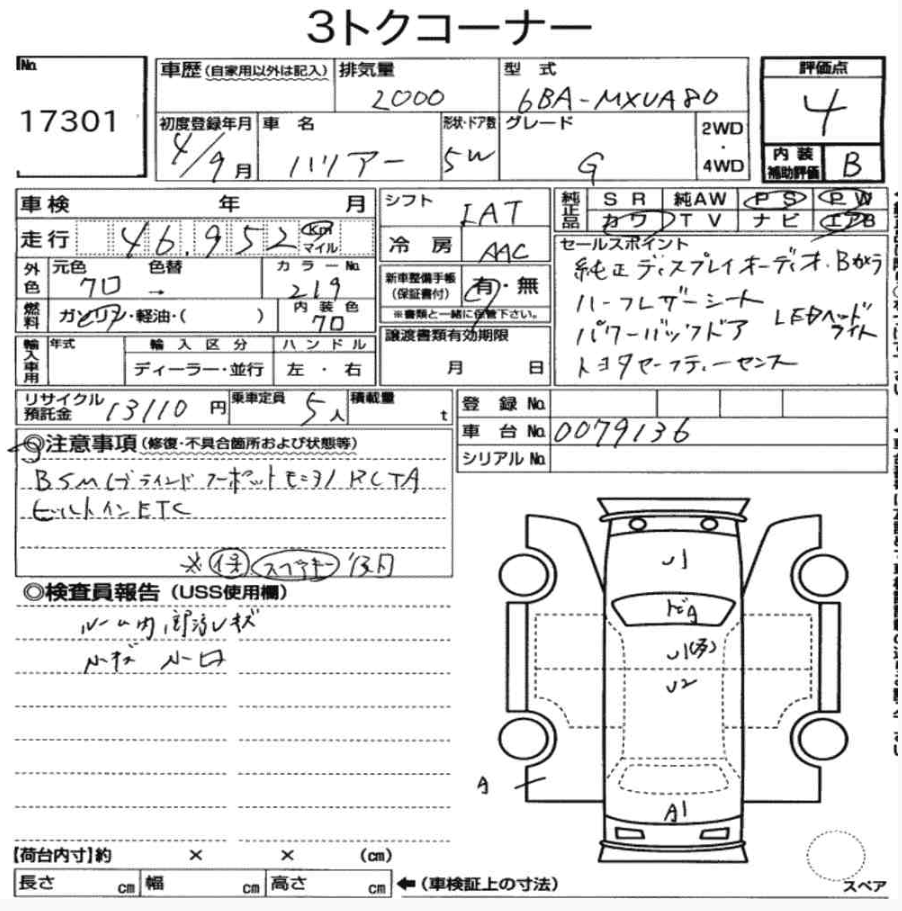 3トクコーナー
No.
17301
車歴（自家用以外は記入）
排気量
2000
型式
6BA-MXUA80
評価点
4
初度登録年月
4/9月
車名
ハリアー
形状・ドア数
5W
グレード
G
2WD・4WD
内装補助評価
B
車検 年 月
シフト
IAT
純正品
SR 純AW PS PW
カワ TV ナビ エアB
走行
46,952 km マイル
冷房
AAC
セールスポイント
純正ディスプレイオーディオ・Bカメラ
ハーフレザーシート
パワーバックドア LEDヘッドライト
トヨタセーフティーセンス
外色
元色 色替
クロ →
カラーNo.
219
新車整備手帳（保証書付）
有・無
※書類と一緒に保管下さい。
燃料
ガソリン・軽油・（ ）
内装色
クロ
譲渡書類有効期限
月 日
輸入車用
年式
輸入区分
ハンドル
ディーラー・並行
左・右
リサイクル預託金
13110円
乗車定員
5人
積載量
t
登録No.
車台No.
0079136
シリアルNo.
◎注意事項（修復・不具合箇所および状態等）
BSM(ブラインドスポットモニター) RCTA
ビルトインETC
※ 保 スペアキー
◎検査員報告（USS使用欄）
ルーム内
小キズ 小凹
U1
U2
A
A1
【荷台内寸】約 × × (cm)
長さ cm 幅 cm 高さ cm
←（車検証上の寸法）
スペア